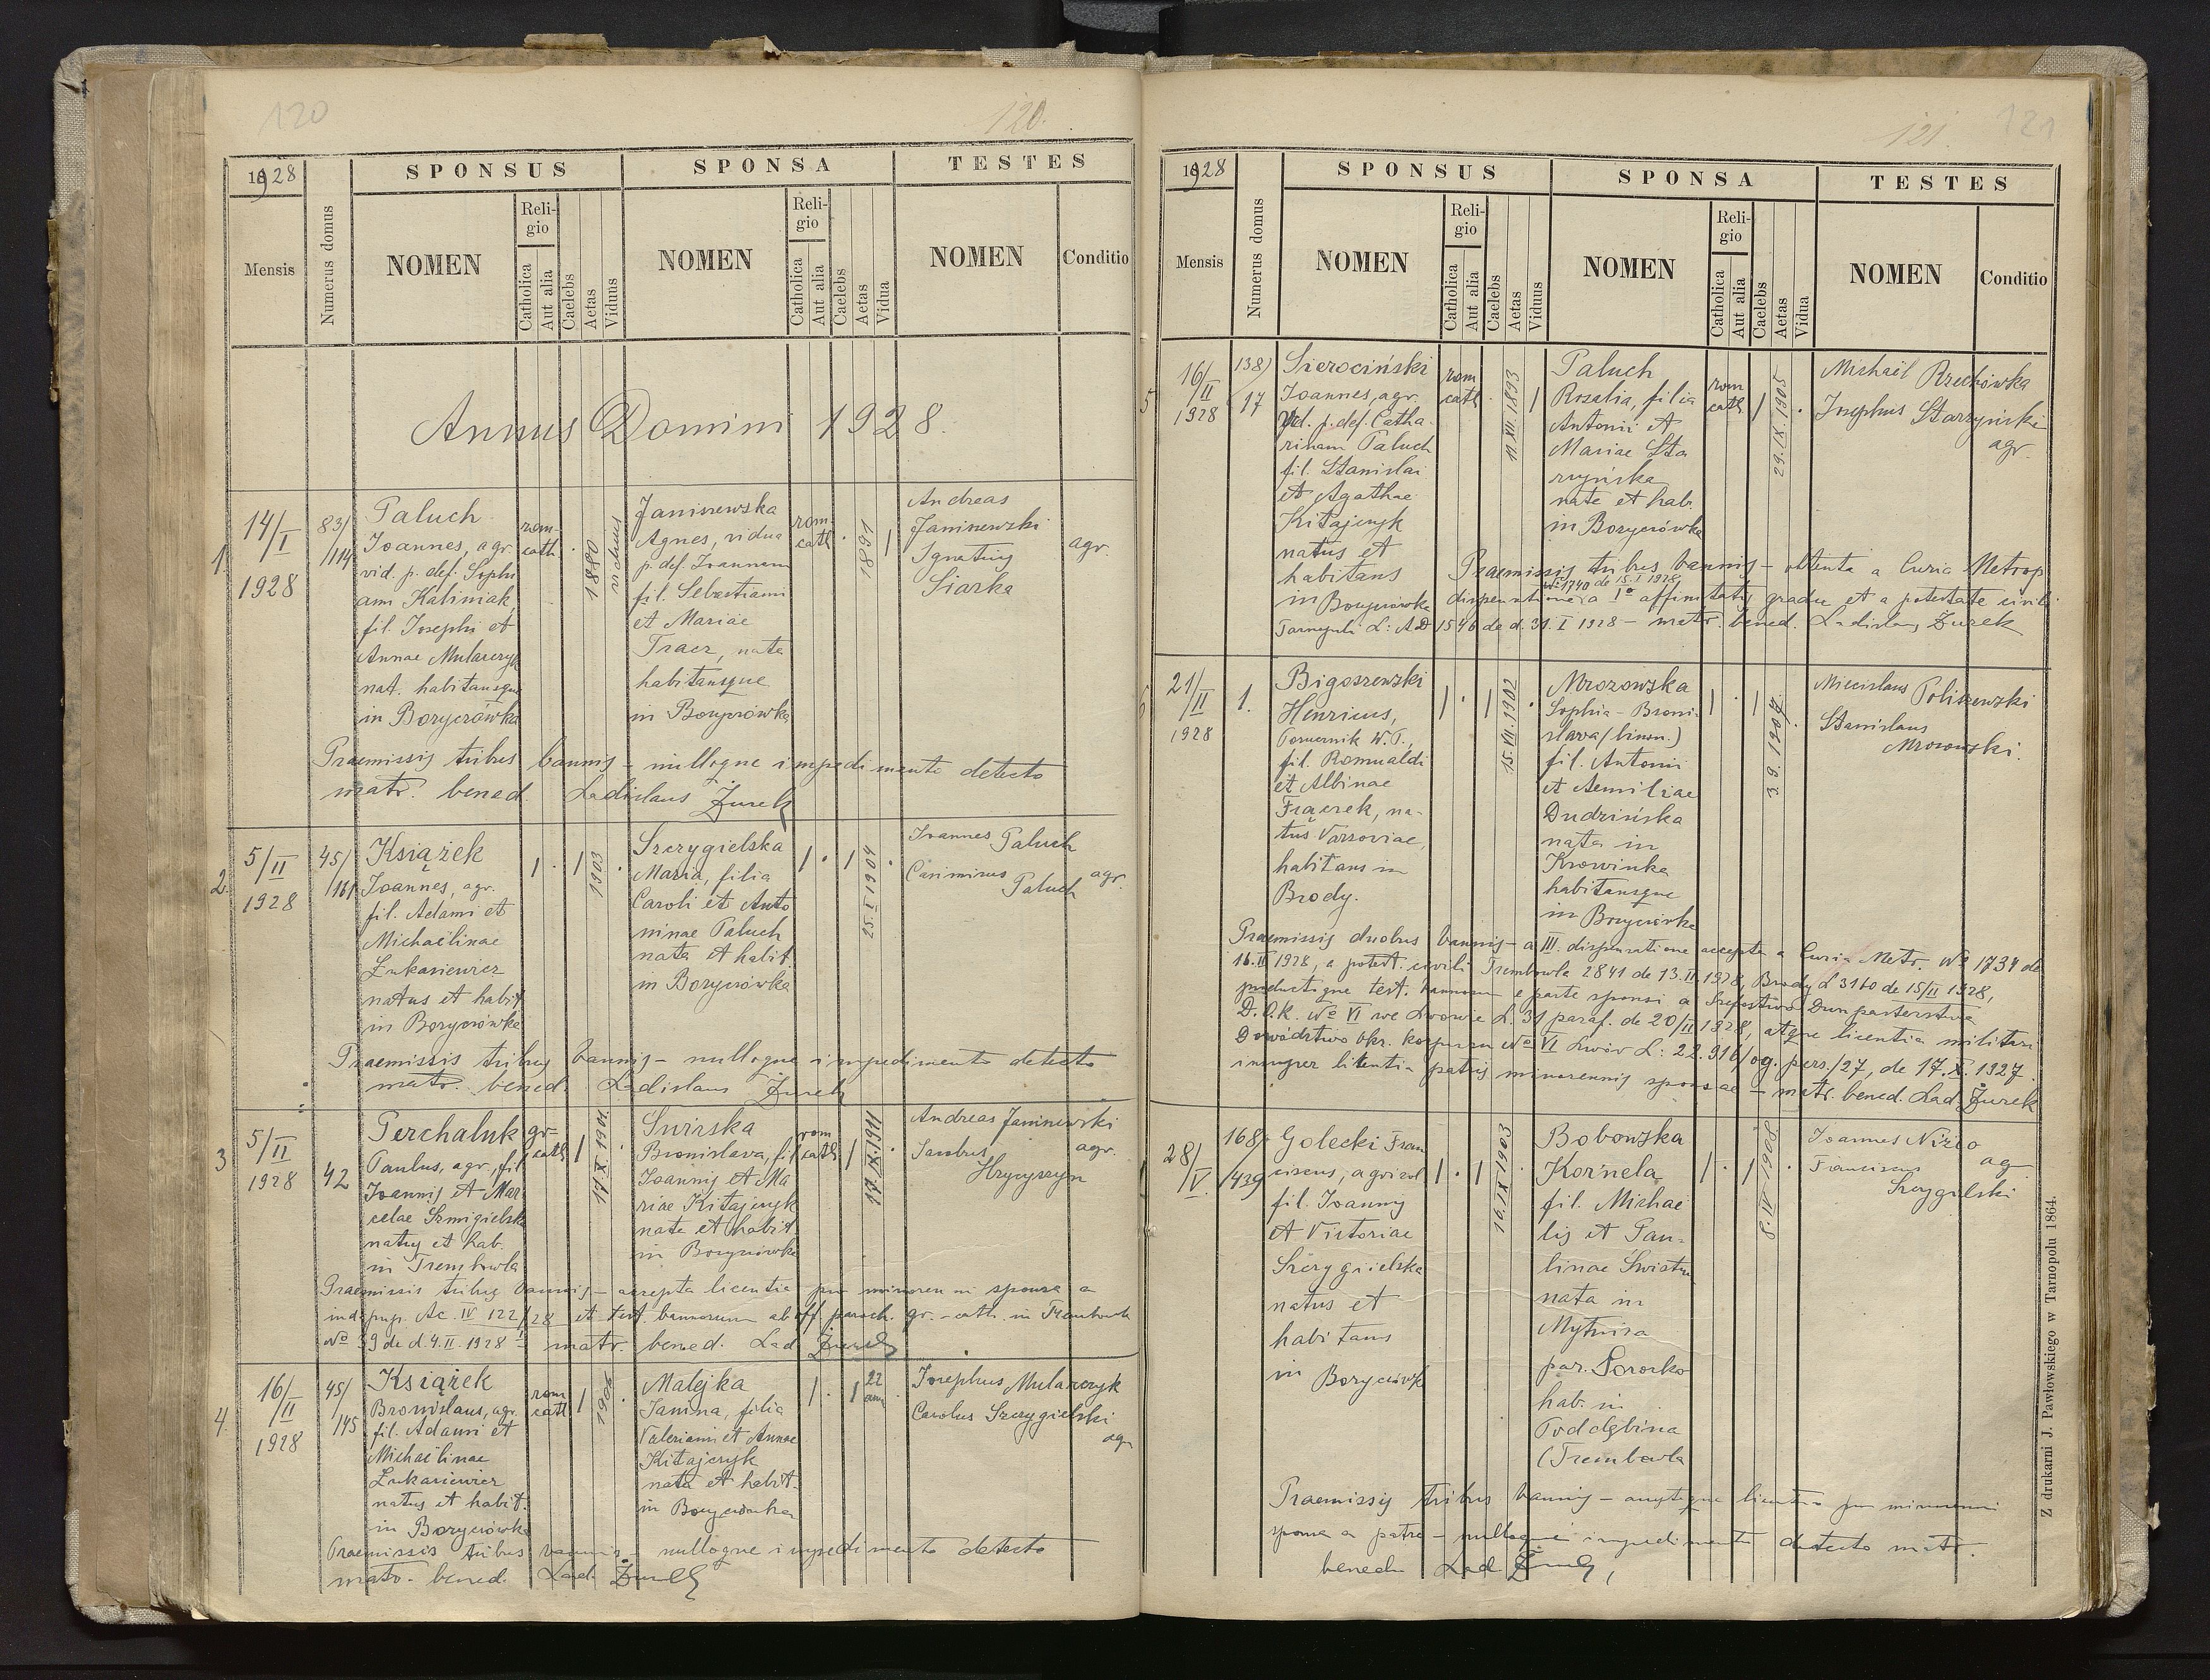 120
120.
1928
SPONSUS
SPONSA
TESTES
Mensis
Numerus domus
NOMEN
Religio
Catholica
Aut alia
Caelebs
Aetas
Viduus
NOMEN
Religio
Catholica
Aut alia
Caelebs
Aetas
Vidua
NOMEN
Conditio
Annus Domini 1928.
1.
14/I
1928
83/
/114
Paluch
Joannes, agr.
vid. p. def. Sophi
am Kaliniak,
fil. Josephi et
Annae Mularczyk
nat. habitansque
in Boryczówka
rom.
cath.
1880
viduus
Janiszewska
Agnes, vidua
p. def. Joannem
fil. Sebastiani
et Mariae
Tracz, nata
habitansque
in Boryczówka
rom.
cath.
1891
Andreas
Janiszewski
Ignatius
Siarka
agr.
Praemissis tribus bannis – nulloque impedimento detecto
matr. bened. Ladislaus Żurek
2.
5/II
1928
45/
/161
Książek
Joannes, agr.
fil. Adami et
Michaëlinae
Łukasiewicz
natus et habit.
in Boryczówka
1903
Szczygielska
Maria, filia
Caroli et Anto
ninae Paluch
nata et habit.
in Boryczówka
25.I 1904
Joannes Paluch
Casimirus
Paluch
agr.
Praemissis tribus bannis – nulloque impedimento detecto
matr. bened. Ladislaus Żurek
3
5/II
1928
42
Perchaluk
Paulus, agr., fil.
Joannis et Mar
celae Szmigielska
natus et hab.
in Trembowla
gr.
cath.
17.X.1901
Swirska
Bronislava, fil.
Joannis et Ma
riae Kitajczyk
nata et habit.
in Boryczówka
rom
cath.
17.IX.1911
Andreas Janiszewski
Jacobus
Hrycyszyn
agr.
Praemissis tribus bannis – accepta licentia pro minorenni sponsa a
ind. pup. Nc. IV 122/28 et test. bannorum ab off. paroch. gr.-cath. in Trembowla
No 39 de d. 4.II.1928 – matr. bened. Lad. Żurek
4.
16/
/II
1928
45/
145
Książek
Bronislaus, agr.
fil. Adami et
Michaëlinae
Łukasiewicz
natus et habit.
in Boryczówka
rom
cath.
1906
Matejka
Janina, filia
Valeriani et Annae
Kitajczyk
nata et habit.
in Boryczówka
22
ann.
Josephus Mularczyk
Carolus Szczygielski
agr.
Praemissis tribus bannis nulloque impedimento detecto
matr. bened. Lad. Żurek
121
121.
1928
SPONSUS
SPONSA
TESTES
Mensis
Numerus domus
NOMEN
Religio
Catholica
Aut alia
Caelebs
Aetas
Viduus
NOMEN
Religio
Catholica
Aut alia
Caelebs
Aetas
Vidua
NOMEN
Conditio
5
16/
II
1928
138)
17
Sierociński
Joannes, agr.
Vid. p. def. Catha
rinam Paluch
fil. Stanislai
et Agathae
Kitajczyk
natus et
habitans
in Boryczówka
rom
cath.
11.XII.1893
Paluch
Rosalia, filia
Antonii et
Mariae Sta
rzyńska
nata et hab.
in Boryczówka
rom
cath.
29.IX.1905
Michaël Rzechówka
Josephus Starzyński
agr.
Praemissis tribus bannis – obtenta a Curia Metrop.
No 1740 de 15.I 1928
dispensatione a Io affinitatis gradu et a potestate civili
Tarnopoli L: AD 1546 de d. 31.I 1928 – matr. bened. Ladislaus Żurek
6
21/
II
1928
1.
Bigoszewski
Henricus,
W.P.,
fil. Romualdi
et Albinae
na-
tus Varsoviae,
habitans in
Brody.
15.VII.1902
Mrozowska
Sophia-Broni-
slava (binom.)
fil. Antonii
et Aemiliae
Dudzińska
nata in
Krowinka
habitansque
in Boryczówka
3.9.1907.
Miecislaus Poliszewski
Stanislaus
Mrozowski.
Praemissis duobus bannis – a III. dispensatione accepta a Curia Metr. No 1734 de
16.II 1928, a potest. civili Trembowla 2841 de 13.II 1928, Brody L 3140 de 15/II 1928,
productique test. bannorum e parte sponsi a Szefostwo Duszpasterstwa
D.O.K. No VI we Lwowie L. 31 paraf. de 20/II 1928, atque licentia militari
Dowództwo Okr. korpusu No VI Lwów L: 22.916/og. pers./27, de 17.X.1927.
insuper licentia patris minorennis sponsae – matr. bened. Lad. Żurek
28/
V.
168/
/439
Golecki Fran
ciscus, agricol
fil. Joannis
et Victoriae
Szczygielska
natus et
habitans
in Boryczówk
16.IX 1903
Bobowska
Kornela
fil. Michae
lis et Pau-
linae Świstun
nata in
Mytnica
par. Sorocko
hab. in
Poddębina
(Trembowla
8.IV 1908
Joannes
Franciscus
Szczygielski
ag
Praemissis tribus bannis – licentia pro minorenni
sponsa a patre – nulloque impedimento detecto matr.
bened. Lad. Żurek,
Z drukarni J. Pawłowskiego w Tarnopolu 1864.